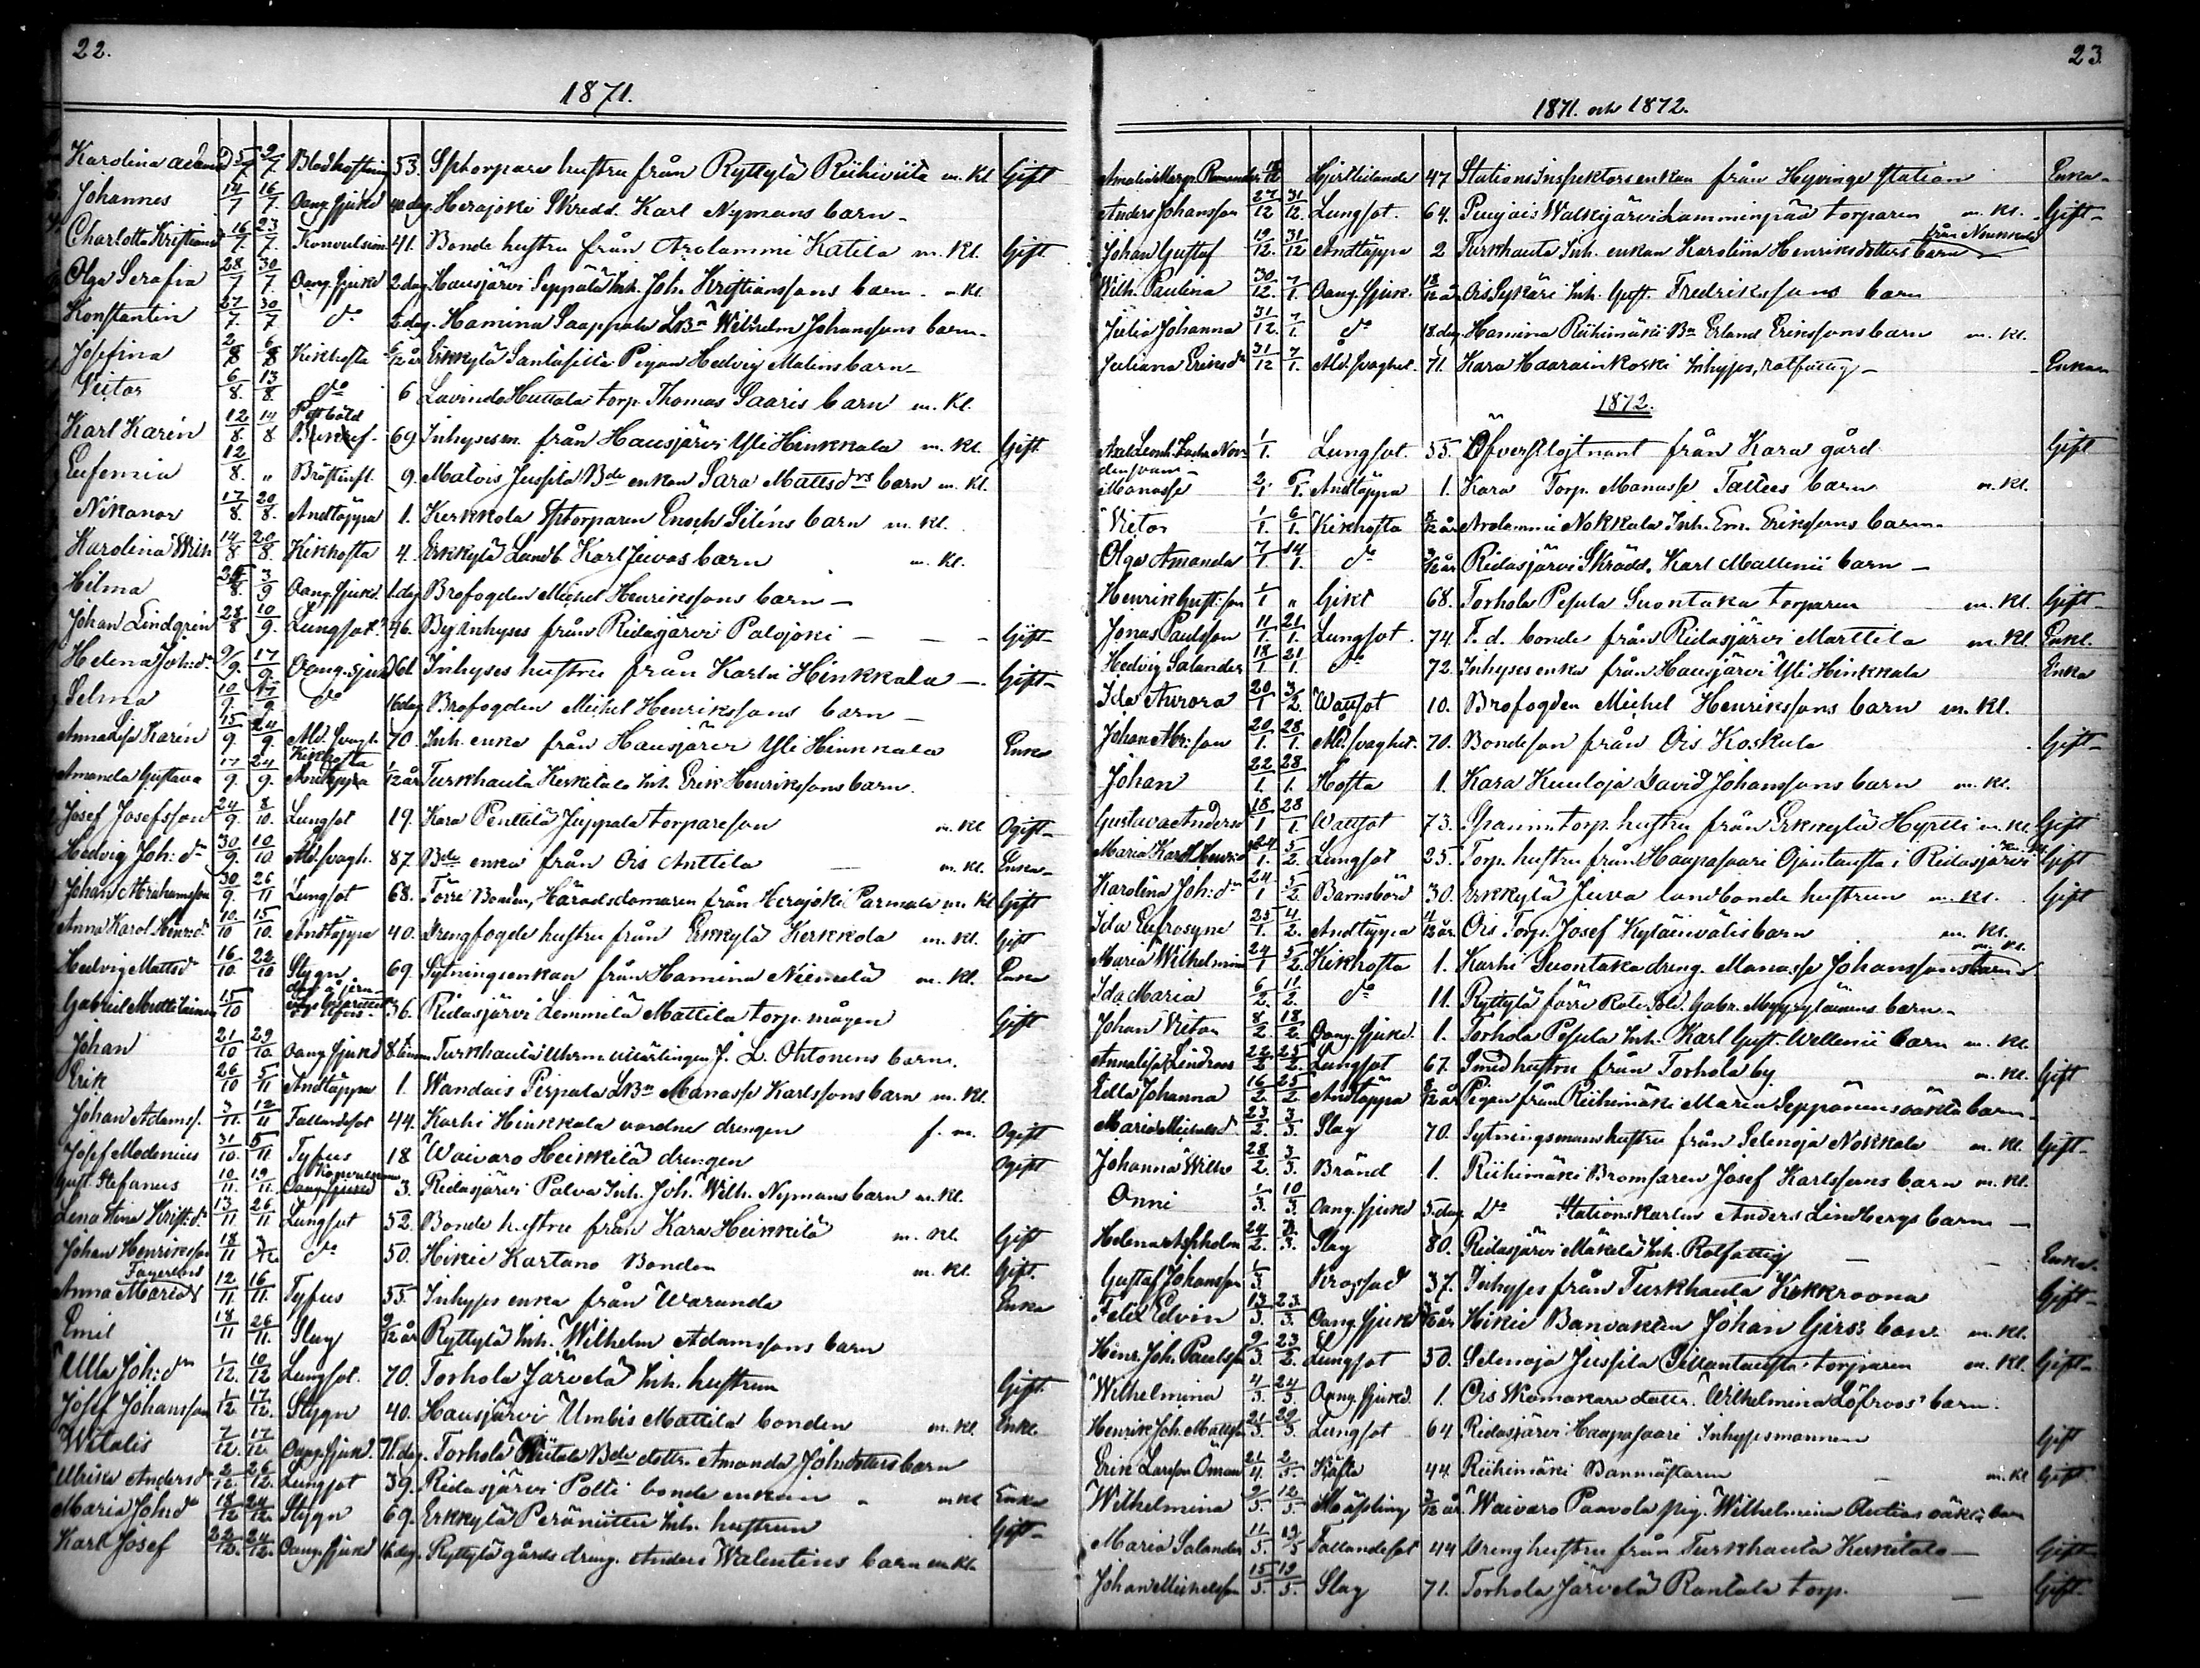 22.
1871.
Karolina 5/7 2/7 Blodhostning 53. Sptorpare hustru från Ryttylä Riihiviita m. kl. Gift
Johannes 14/7 16/7 Oang. sjukd Herajoki Skredd. Karl Nymans barn
Charlotta Kristiana 16/7 23/7 Konvulsion 41. Bonde hustru från Arolammi Katila m. kl. Gift
Olga Serafia 28/7 30/7 Oang. sjukd 2 dag. Hausjärvi Seppälä Inh. Joh. Kristianssons barn m. kl.
Konstantin 27/7 30/7 do dag. Hamina Saappala Wilhelm Johanssons barn
Josefina 2/8 6/8 Kikhosta /12 år Erkkylä Santasilta Pigan Hedvig Malins barn
Victor 6/8. 13/8. do 6 Lavinda Huttala torp. Thomas Saaris barn m. kl.
Karl Karén 12/8. 14/8 69. Inhysesm. från Hausjärvi Yli Hinkkala m. kl. Gift
Eufemia 12/8. " Bröstinfl. 9. Matois Jussila Bde enkan Sara Mattsdrs barn m. kl.
Nikanor 17/8. 20/8. Andtäppa 1. Kerkkola Sptorparen Enoch Siléns barn m. kl.
Karolina Wilh 14/8 20/8 Kikhosta 4. Erkkylä Landb. Karl Juvas barn m. kl.
Hilma /8. 3/9 Oang. sjukd. 1 dag Brofogden Michel Henrikssons barn
Johan Lindgrén 28/8 10/9. Lungsot 46. Inhyses från Ridasjärvi Palojoki Gift
Helena Joh:dr 9/9. 17/9. Oang. sjukd 61 Inhyses hustru från Karhi Hinkkala Gift
Selma 10/9. 17/9 do 16 dag Brofogden Michel Henrikssons barn
Anna Lisa Karén 15/9. 24/9. Ald. svagh. 70. Inh. enka från Hausjärvi Yli Hinkkala Enka
Amanda Gustava 17/9. 24/9. Kikhosta Andtäppa 1/12 år Turkhauta Kerkitalo Inh. Erik Henrikssons barn.
Josef Josefsson 24/9. 8/10. Lungsot 19. Kara Penttilä Juppala torpareson m. kl Ogift
Hedvig Joh:dr 30/9. 10/10 Ald. svagh. 87. Bde enka från Ois Anttila m. kl. Enka
Johan Abrahamsson 30/9. 26/11 Lungsot 68. Förre Bonden, Häradsdomaren från Herajoki Parmala m. kl Gift
Anna Karol. Henr:dr 10/10 15/10. Andtäppa 40. Drengfogde hustru från Erkkylä Kerkkola m. kl. Gift
Hedvig Mattsdr 16/10. 22/10 Stygn 69. Sytningsenkan från Hamina Niemelä m. kl. Enka
Gabriel Muttilainen 15/10 36. Ridasjärvi Lemmilä Mattila torp. mågen Gift
Johan 21/10 29/10. Oang sjukd 8. Turkhauta J. L. Ohtonens barn.
Erik 26/10 5/11 Andtäppa 1. Wandais Pirpala Manasse Karlssons barn m. kl.
Johan Adamss. 3/11. 12/11 Fallandesot 44. Karhi Hinkkala vordne drengen f. m. Ogift
Josef Modenius 31/10. 5/11 Tyfus 18 Waivaro Heikkilä drengen Ogift
Gust. Stefanus 10/11. 19/11. Konvulsion Oang. sjukd 3. Ridasjärvi Palva Inh. Joh. Wilh. Nymans barn m. kl.
Lena Stina Krist:dr 13/11 26/11 Lungsot 52. Bonde hustru från Kara Heikkilä m. kl. Gift
Johan Henriksson 18/11 3/12 do 50. Hikiä Kartano Bonden m. kl. Gift.
Anna Maria Fagerlund 12/11 16/11. Tyfus 55. Inhyses enka från Waranda Enka
Emil 18/11 26/11. Slag 9/12 år Ryttylä Inh. Wilhelm Adamssons barn
Ulla Joh:dr 1/12. 10/12 Lungsot. 70. Torhola Järvelä Inh. hustrun Gift.
Josef Johansson 1/12 17/12. Stygn 40. Hausjärvi Umbis Mattila bonden m. kl Enkl.
Witalis 7/12. 17/12. Oang. sjukd. dag. Torhola Bde dottr. Amanda Johdotters barn
Ulrika Andersdr 2/12. 26/12. Lungsot 39. Ridasjärvi Polti bonde enkan m kl Enka
Maria Joh:dr 18/12 24/12. Stygn 69. Erkkylä Peräniittu Inh. hustrun Gift
Karl Josef 22/12. 24/12. Oang. sjukd dag. Ryttylä gårds dreng. Anders Walentins barn m. kl.
23
1871. och 1872.
Amalia Marg. Hjertlidande 47 Stations Inspektors enkan från Hyvinge station Enka
Anders Johansson 27/12 31/12. Lungsot. 64. Lamminpää torparen m. kl. Gift
Johan Gustaf 19/12. 31/12 Andtäppa 2 Turkhauta Inh. enkan Karolina Henriksdotters barn från Nunkala
Wilh. Paulina 30/12. 7/1. Oang. sjuk. /12 år Ois Sykäri Inh. Gust. Fredrikssons barn
Julia Johanna 31/12. 7/1. do 18 dag. Hamina Riihimäki Bn Erland Erikssons barn m. kl.
Juliana Eriksdr 31/12 7/1. Åld. svaghet. 71. Kara Haarainkoski Inhyses, rotfattig Enka
1872.
Axel 1/1. Lungsot. 55. Öfverstlöjtnant från Kara gård. Gift
Manasse 2/1 6/1. Andtäppa 1. Kara Torp. Manasse Talléns barn m. kl.
Victor 1/1 6/1. Kikhosta /12 år Arolammi Nokkala Inh. Em. Erikssons barn
Olga Amanda 7/1 14/1. do /12 år Ridasjärvi Skrädd. Karl Mallenii barn
Henrik Gust:son 1/1 " Gikt 68. Torhola Pesula Suontaka torparen m. kl. Gift
Jonas Paulsson 11/1. 21/1. Lungsot 74. F. d. bonde från Ridasjärvi Marttila m. kl. Enkl.
Hedvig Salander 18/1 21/1. do 72. Inhyses enka från Hausjärvi Yli Hinkkala Enka
Ida Aurora 20/1 3/2. Wattsot 10. Brofogden Michel Henrikssons barn m. kl.
Johan Abr:son 20/1. 28/1. Åld. svaghet. 70. Bondeson från Ois Koskula Gift
Johan 22/1. 28/1. Hosta 1. Kara Kuuloja David Johanssons barn m. kl.
Gustava Andersd 18/1 28/1. Wattsot 73. Spanm. torp. hustru från Erkkylä Hyrtti m. kl. Gift
Maria Karol. Henr:d 24/1. 5/2. Lungsot 25. Torp. hustru från Haapasaari Ojantausta i Ridasjärvi Gift
Karolina Joh:dr 24/1 5/2. Barnsbörd 30. Erkkylä Juva landbonde hustrun m. kl. Gift
Ida Eufrosyne 25/1. 4/2. Andtäppa 4/12 år. Ois Torp. Josef Kyläinvälis barn m. kl.
Maria Wilhelmina 24/1 5/2. Kikhosta 1. Karhi Suontaka dreng. Manasse Johanssons barn m. kl.
Ida Maria 6/2. 11/2. do 11. Ryttylä förre Rote Sold. Gabr. barn
Johan Victor 8/2. 18/2. Oang. sjukd. 1. Torhola Pesula Inh. Karl Gust. Wellenii barn m. kl.
Annalisa Lindroos 22/2 25/2. Lungsot 67. Smed hustru från Torhola by. m. kl. Gift
Edla Johanna 16/2. 25/2 Andtäppa 8/12 år Pigan från Riihimäki Maria Seppänens oäkta barn
Maria Michelsdr 23/2. 3/3. Slag 70. Sytningsmans hustru från Selenoja Nokkala m. kl. Gift
Johanna Wilh 28/2. 3/3. Bränd 1. Riihimäki Bromsaren Josef Karlssons barn m. kl.
Onni 1/3. 10/3. Oang. sjukd 5 dag do Stationskarlen Anders Lindbergs barn
Helena 24/2. /3. Slag 80. Ridasjärvi Mäkelä Inh. Rotfattig Enka
Gustaf Johansson 1/3 Krossad 37. Inhyses från Turkhauta Kokkroona Gift
Felix Edvin 13/3. 23/3. Oang. sjukd /12 år Hikiä Banvakten Johan Girss barn m. kl.
Henr. Joh. Paulsson 9/3. 23/2. Lungsot 50. Selenoja Jussila torparen m. kl. Gift
Wilhelmina 4/3 24/3. Oang. sjukd. 1 Ois Skomakare dottr. Wilhelmina Löfroos' barn.
Henrik Joh. Mattss. 21/3. 29/3. Lungsot 64 Ridasjärvi Haapasaari Inhysesmannen Gift
Erik Larsson Öman 21/4. 2/5. Kräfta 44. Riihimäki Banmästaren m. kl Gift
Wilhelmina 9/5 12/5. Mässling 3/12 år. Waivaro Paavola pig. Wilhelmina oäkta barn
Maria Salander 11/5. 19/5 Fallandesot 44 Dreng hustru från Turkhauta Kerkitalo Gift
Johan Michelsson 15/5. 19/5. Slag 71. Torhola Järvelä Rantala torp. Gift.